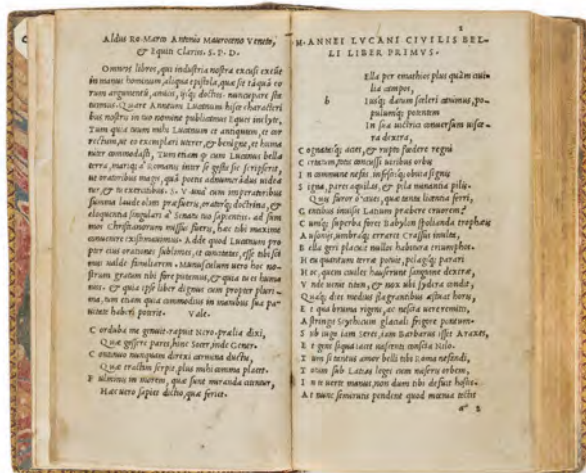 Aldus Ro. Marco Antonio Mauroceno Veneto,
& Equiti Clariss. S. P. D.
Omnes libros, qui industria nostra excusi exeūt
in manus hominum, aliqua epistola, quæ sit tāquā eo
rum argumentū, amicis, ijsq; doctis nuncupare sta
tuimus. Quare Annæum Lucanum hisce characteri
bus nostris in tuo nomine publicamus Eques inclyte,
Tum quia tuum mihi Lucanum et antiquum, et cor
rectum, ut eo exemplari uterer, & benigne, et huma
niter commodasti, Tum etiam q cum Lucanus bella
terra, mariq; a Romanis inter se gesta sic scripserit,
ut oratoribus magis, quā poetis adnumerādus uidea
tur, & tu exercitibus. S. V. una cum imperatoribus
summa laude olim præfueris, oraterq; doctrina, &
eloquentia singulari a Senatu tuo sapientiss. ad sum
mos Christianorum missus fueris, hæc tibi maxime
conuenire existimauimus. Adde quod Lucanum pro
pter eius orationes sublimes, et concitatas, esse tibi sci
mus ualde familiarem. Munusculum uero hoc no-
strum gratum tibi fore putemus, & quia tu es huma
niss. & quia ipse liber dignus cum propter pluri-
ma, tum etiam quia commodius in manibus sua pa-
uitate haberi poterit. Vale.
C orduba me genuit. rapuit Nero. prælia dixi,
Quæ gessere pares, hinc Socer, inde Gener.
C ontinuo nunquam direxi carmina ductu,
Quæ tractim serpit, plus mihi comma placet.
F ulminis in morem, quæ sint miranda citentur,
Hæc uere sapiet dictio, quæ feriet.
M. ANNEI LVCANI CIVILIS BEL-
LI LIBER PRIMVS.
Ella per emathios plus quàm ciui
lia campos,
b
Iusq; datum sceleri canimus, po-
pulumq; potentem
In sua uictrici conuersum uisce-
ra dextra,
C ognatasq; acies, & rupto fœdere regni
C ertatum, totis concussi uiribus orbis
I n commune nefas, infestisq; obuia signis
S igna, pares aquilas, & pila minantia pilis.
Quis furor ô ciues, quæ tanta licentia ferri,
G entibus inuisis Latium præbere cruorem?
C umq; superba foret Babylon spolianda trophæis
A usonijs, umbraq; erraret Crassus inulta,
B ella geri placuit nullos habitura triumphos.
H eu quantum terræ potuit, pelagiq; parari
H oc, quem ciuiles hauserunt sanguine dextræ,
V nde uenit titan, & nox ubi sydera condit,
Quaq; dies medius flagrantibus æstuat horis,
E t qua bruma rigens, ac nescia uere remitti,
A stringit Scythicum glaciali frigore pontum.
S ub iuga iam Seres, iam Barbarus isset Araxes,
E t gens siqua iacet nascenti conscia Nilo.
T um si tantus amor belli tibi Roma nefandi,
T otum sub Latias leges cum miseris orbem,
I n te uerte manus, non dum tibi defuit hostis.
A t nunc semirutis pendent quod mœnia tectis